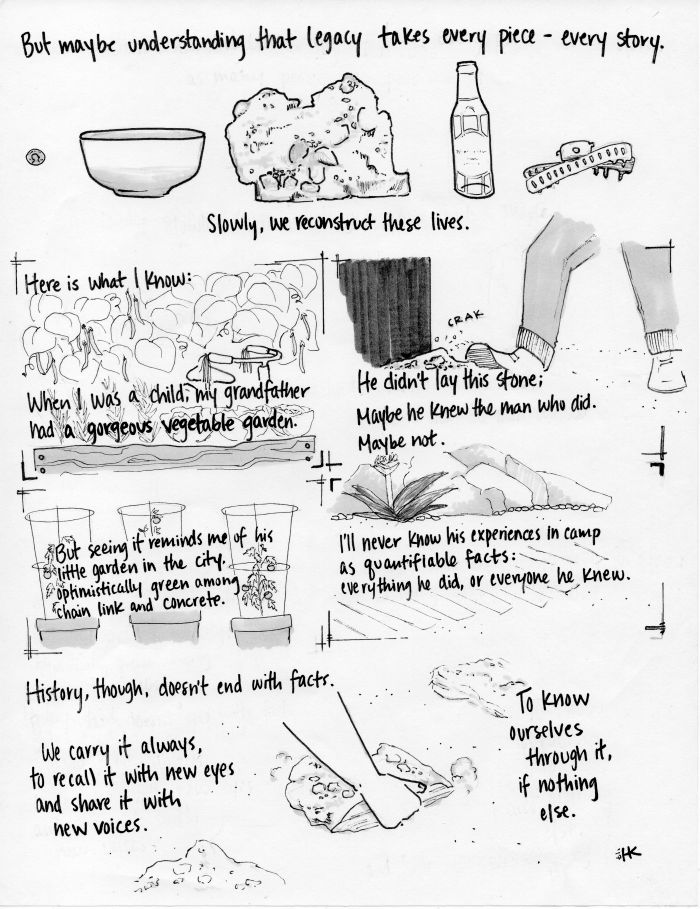 But maybe understanding that legacy takes every piece - every story.
Slowly, we reconstruct these lives.
Here is what I know:
When I was a child, my grandfather
had a gorgeous vegetable garden.
CRAK
He didn't lay this stone;
Maybe he knew the man who did.
Maybe not.
But seeing it reminds me of his
little garden in the city.
optimistically green among
chain link and concrete.
I'll never know his experiences in camp
as quantifiable facts:
everything he did, or everyone he knew.
History, though, doesn't end with facts.
We carry it always,
to recall it with new eyes
and share it with
new voices.
To know
ourselves
through it,
if nothing
else.
HK